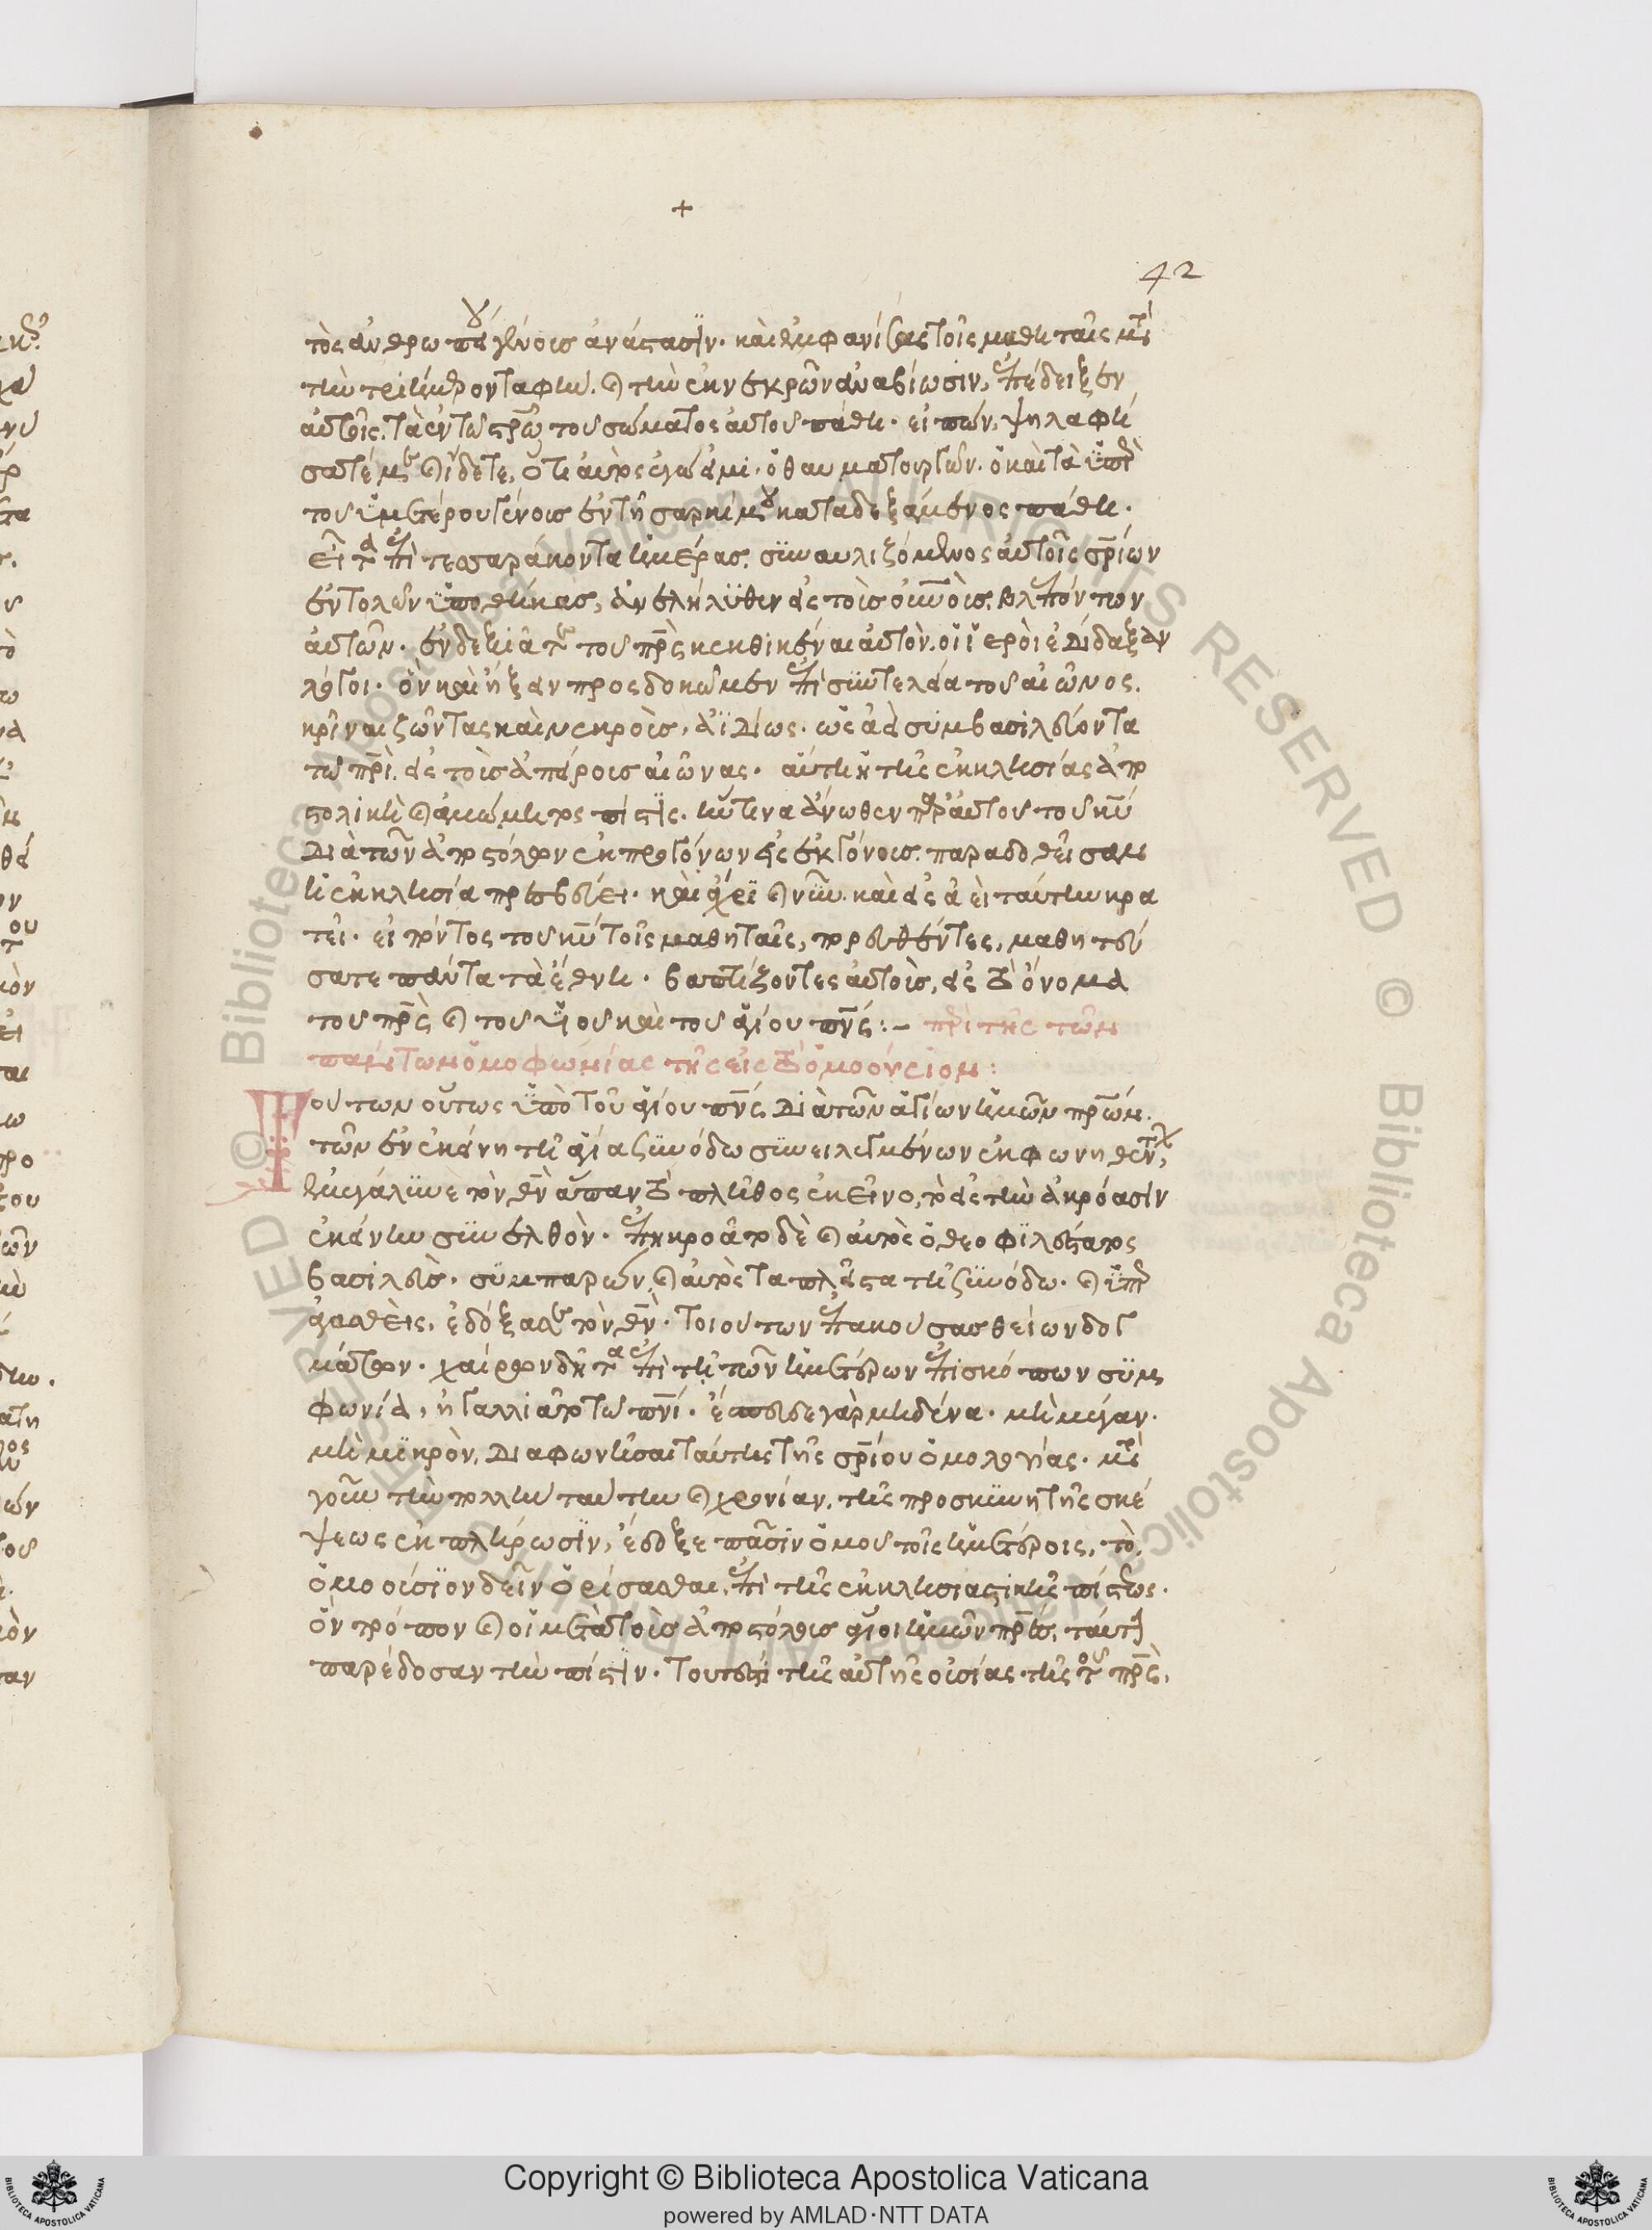 +
42
τὸς ἀνθρωπείου γένους ἀνάστασιν. καὶ ἐμφανίσας τοῖς μαθηταῖς μετὰ
τὴν τριήμερον ταφὴν. καὶ τὴν ἐκ νεκρῶν ἀναβίωσιν, ἐπέδειξεν
αὐτοῖς. τὰ ἐν τῷ σταυρῷ τοῦ σώματος αὐτοῦ πάθη. εἰπών, ψηλαφή
σατέ με καὶ ἴδετε, ὅτι αὐτὸς ἐγώ εἰμι. ὁ θαυματουργῶν. ὁ καὶ τὰ ὑπὲρ
τοῦ ὑμετέρου γένους ἐν τῇ σαρκί μου καταδεξάμενος πάθη.
εἶτα ἐπὶ τεσσαράκοντα ἡμέρας. συναυλιζόμενος αὐτοῖς σωτηρίων
ἐντολῶν ὑποθήκας, ἀνελήλυθεν εἰς τοὺς οὐρανοὺς, βλεπόντων
αὐτῶν. ἐν δεξιᾷ τε τοῦ πατρὸς κεκαθικέναι αὐτὸν. οἱ ἱεροὶ ἐδίδαξαν
λόγοι. ὃν καὶ ἥξειν προσδοκῶμεν ἐπὶ συντελείᾳ τοῦ αἰῶνος.
κρῖναι ζῶντας καὶ νεκροὺς, ἀϊδίως. ὡς ἀεὶ συμβασιλεύοντα
τῷ πατρὶ. εἰς τοὺς ἀπείρους αἰῶνας. αὕτη ἡ τῆς ἐκκλησίας ἀπο
στολικὴ καὶ ἀμώμητος πίστις. ἥντινα ἄνωθεν παρ' αὐτοῦ τοῦ κυρίου
διὰ τῶν ἀποστόλων ἐκ προγόνων εἰς ἐκγόνους. παραδοθεῖσαν
ἡ ἐκκλησία πρεσβεύει. καὶ ἄχρι καὶ νῦν. καὶ εἰς ἀεὶ ταύτην κρα
τεῖ. εἰπόντος τοῦ κυρίου τοῖς μαθηταῖς, πορευθέντες, μαθητεύ
σατε πάντα τὰ ἔθνη. βαπτίζοντες αὐτοὺς, εἰς τὸ ὄνομα
τοῦ πατρὸς καὶ τοῦ υἱοῦ καὶ τοῦ ἁγίου πνεύματος:– περὶ τῆς τῶν
πάντων ὁμοφωνίας τῆς εἰς τὸ ὁμοούσιον:
Τούτων οὕτως ὑπὸ τοῦ ἁγίου πνεύματος διὰ τῶν ἁγίων ἡμῶν πατέρων.
τῶν ἐν ἐκείνῃ τῇ ἁγίᾳ συνόδῳ συνειλεγμένων ἐκφωνηθέντων,
ἐμεγάλυνε τὸν θεὸν ἅπαν τὸ πλῆθος ἐκεῖνο, τὸ εἰς τὴν ἀκρόασιν
ἐκείνην συνελθόν. ἐπηκροᾶτο δὲ καὶ αὐτὸς ὁ θεοφιλέστατος
βασιλεὺς. συμπαρών, καὶ αὐτὸς τὰ πλεῖστα τῇ συνόδῳ. καὶ ὑπερ
αγασθεὶς, ἐδόξασε τὸν θεὸν. τοιούτων ἐπακούσας θείων δογ
μάτων. χαίρων δὴ τὰ ἐπὶ τῇ τῶν ἡμετέρων ἐπισκόπων συμ
φωνίᾳ, ἠγαλλιᾶτο τῷ πνεύματι. ἔσπευδε γὰρ μηδένα. μὴ μέγαν.
μὴ μικρὸν. διαφωνῆσαι ταύτης τῆς σωτηρίου ὁμολογίας. μετὰ
γοῦν τὴν πολλὴν ταύτην καὶ χρονίαν. τῆς προσκυνητῆς σκέ
ψεως ἐκπλήρωσιν, ἔδοξε πᾶσιν ὁμοῦ τοῖς ἡμετέροις. τὸ
ὁμοούσιον δεῖν ὁρίσασθαι. ἐπὶ τῆς ἐκκλησιαστικῆς πίστεως.
ὃν τρόπον καὶ οἱ μετὰ τοὺς ἀποστόλους ἅγιοι ἡμῶν πατέρες, ταύτην
παρέδοσαν τὴν πίστιν. τουτέστι τῆς αὐτῆς οὐσίας. τῆς τοῦ πατρὸς.
Copyright © Biblioteca Apostolica Vaticana
powered by AMLAD·NTT DATA